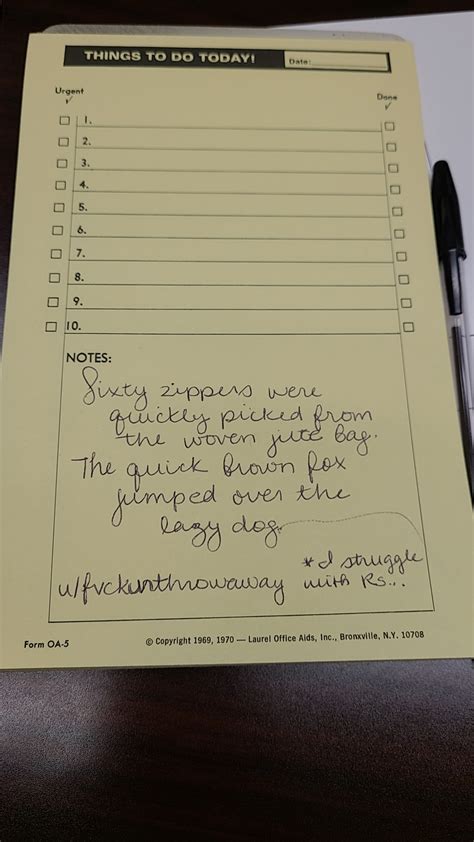 THINGS TO DO TODAY! Date:
Urgent Done
✓ ✓
1.
2.
3.
4.
5.
6.
7.
8.
9.
10.
NOTES:
Sixty zippers were
quickly picked from
the woven jute bag.
The quick brown fox
jumped over the
lazy dog.
*I struggle
u/fvckinthrowaway with Rs...
Form OA-5 © Copyright 1969, 1970 — Laurel Office Aids, Inc., Bronxville, N.Y. 10708